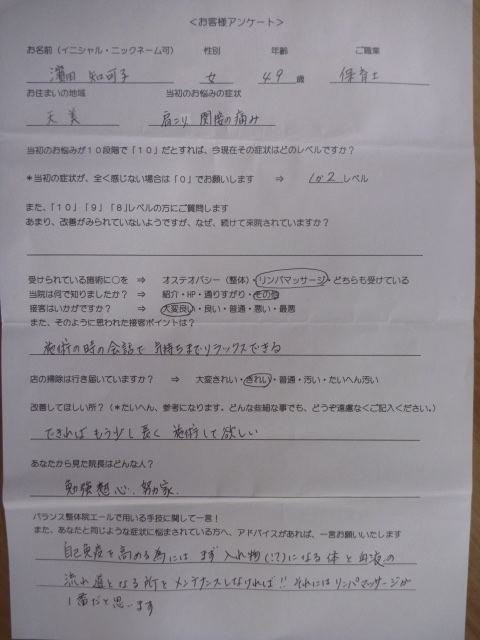 <お客様アンケート>
お名前(イニシャル・ニックネーム可) 性別 年齢 ご職業
濱田 知可子 女 49 歳 保育士
お住まいの地域 当初のお悩みの症状
天美 肩こり 関接の痛み
当初のお悩みが10段階で「10」だとすれば、今現在その症状はどのレベルですか?
*当初の症状が、全く感じない場合は「0」でお願いします ⇒ 1か2 レベル
また、「10」「9」「8」レベルの方にご質問します
あまり、改善がみられていないようですが、なぜ、続けて来院されていますか?
受けられている施術に○を ⇒ オステオパシー(整体)・リンパマッサージ・どちらも受けている
当院は何で知りましたか? ⇒ 紹介・HP・通りすがり・その他
接客はいかがですか? ⇒ 大変良い・良い・普通・悪い・最悪
また、そのように思われた接客ポイントは?
施術の時の会話で 気持ちまでリラックスできる
店の掃除は行き届いていますか? ⇒ 大変きれい・きれい・普通・汚い・たいへん汚い
改善してほしい所?(*たいへん、参考になります。どんな些細な事でも、どうぞ遠慮なくご記入ください。)
できれば もう少し長く 施術して欲しい
あなたから見た院長はどんな人?
勉強熱心、努力家、
バランス整体院エールで用いる手技に関して一言!
また、あなたと同じような症状に悩まされている方へ、アドバイスがあれば、一言お願いいたします
自己免疫を高める為には まず 入れ物(!?)になる体と血液の
流れ道となる所をメンテナンスしなければ!! それにはリンパマッサージが
1番だと思います